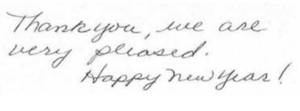 Thank you, we are
very pleased.
Happy New Year!